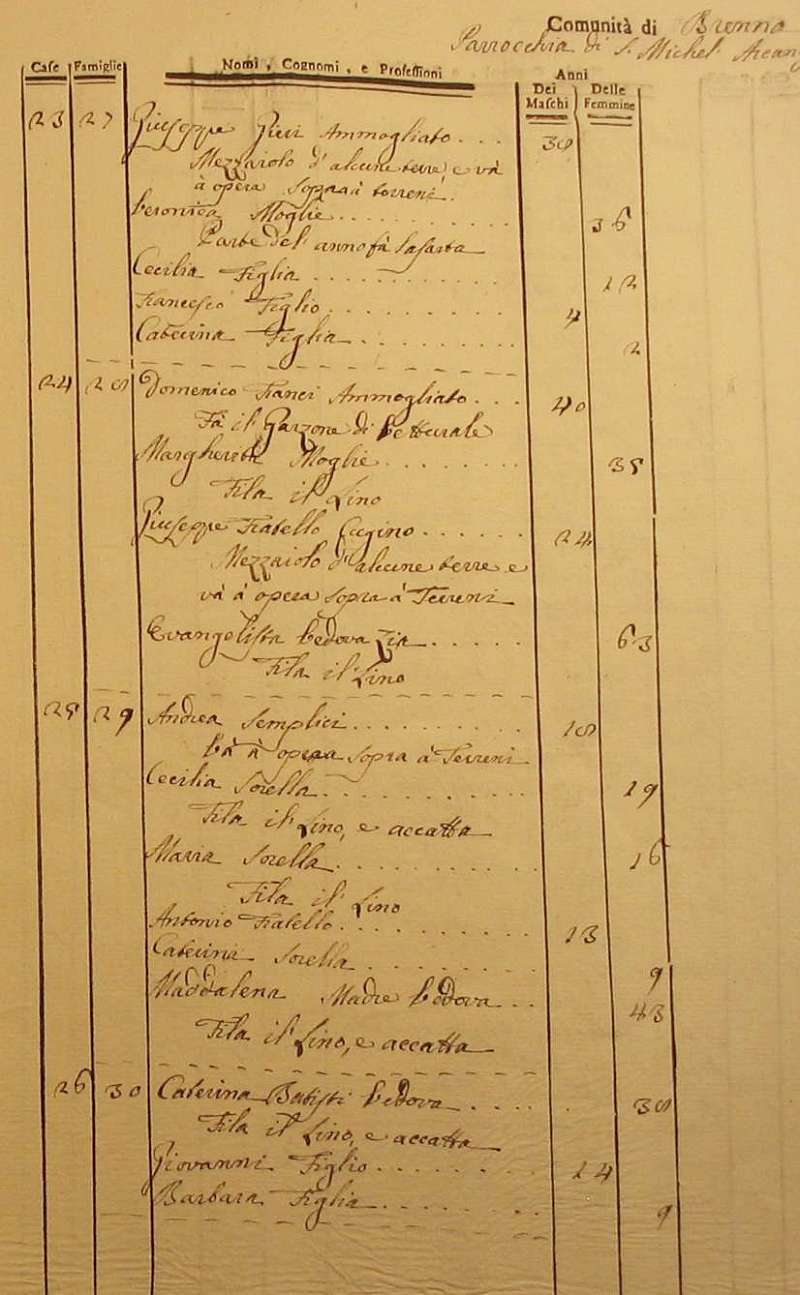 Comunità di Brenna
Parrocchia di S. Michel Arcang
Case Famiglie Nomi, Cognomi, e Professioni Anni
Dei Maschi Delle Femmine
23 27 Giuseppe Ammogliato . . . 38
Mezzaiolo d'alcune terre, e và
à opera sopra à terreni.
Veronica Moglie . . . . . . . . . . 36
Parte del'anno fà la sarta
Cecilia Figlia . . . . . . . . . . . 12
Francesco Figlio . . . . . . . . . . 4
Caterina Figlia . . . . . . . . . . 2
24 28 Domenico Franci Ammogliato . . . 40
Fà il Garzone di Vetturale
Margherita Moglie . . . . . . . . 35
Fila il Lino
Giuseppe Fratello Cugino . . . . . . 24
Mezzaiolo d'alcune terre e
và à opera sopra à Terreni
Evangelista Vedova Zia . . . . . . 63
Fila il Lino
25 29 Andrea Semplici . . . . . . . . . . 18
Và à opera sopra à Terreni
Cecilia Sorella . . . . . . . . . . 19
Fila il Lino, e accatta
Maria Sorella . . . . . . . . . . 16
Fila il Lino
Antonio Fratello . . . . . . . . . . 13
Caterina Sorella . . . . . . . . 9
Maddalena Madre Vedova . . . 43
Fila il Lino, e accatta
26 30 Caterina Batisti Vedova . . . . . 38
Fila il Lino, e accatta
Giovanni Figlio . . . . . . . . 14
Barbara Figlia . . . . . . . . 9